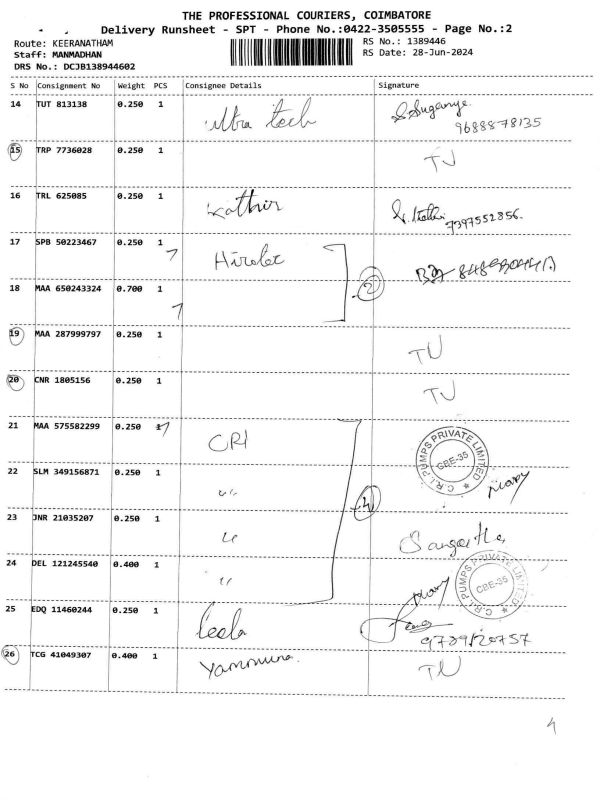 THE PROFESSIONAL COURIERS, COIMBATORE
Delivery Runsheet - SPT - Phone No.:0422-3505555 - Page No.:2
Route: KEERANATHAM
RS No.: 1389446
Staff: MANMADHAN
RS Date: 28-Jun-2024
DRS No.: DCJB138944602
S No Consignment No Weight PCS Consignee Details Signature
14 TUT 813138 0.250 1 Ultra tech S. Suganya
9688878135
15 TRP 7736028 0.250 1 TU
16 TRL 625085 0.250 1 Kathir
7397552856.
17 SPB 50223467 0.250 1
18 MAA 650243324 0.700 1 2
19 MAA 287999797 0.250 1 TU
20 CNR 1805156 0.250 1 TU
21 MAA 575582299 0.250 1 CRI C.R.I. PUMPS PRIVATE LIMITED CBE-35
22 SLM 349156871 0.250 1 "
23 JNR 21035207 0.250 1 " Sangeetha
4
24 DEL 121245540 0.400 1 " C.R.I. PUMPS PRIVATE LIMITED CBE-35
25 EDQ 11460244 0.250 1 leela
26 TCG 41049307 0.400 1 Yammuna. TU
4